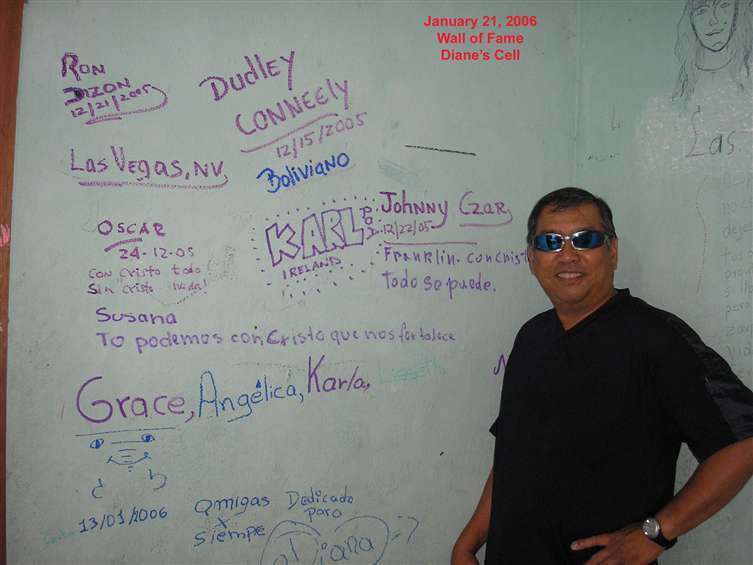 January 21, 2006
Wall of Fame
Diane's Cell
RON
DIZON
12/21/2005
LAS VEGAS, NV
DUDLEY
CONNEELY
12/15/2005
BOLIVIANO
KARL
IRELAND
JOHNNY CZAR
12/22/05
Franklin. con
Todo se puede.
OSCAR
24-12-05
CON CRISTO todo
Sin Cristo nada!
Susana
To podemos con Cristo que nos fortalece
Grace, Angélica, Karla, Lissette
13/01/2006
Amigas
x
siempe
Dedicado
para
Diana
Las